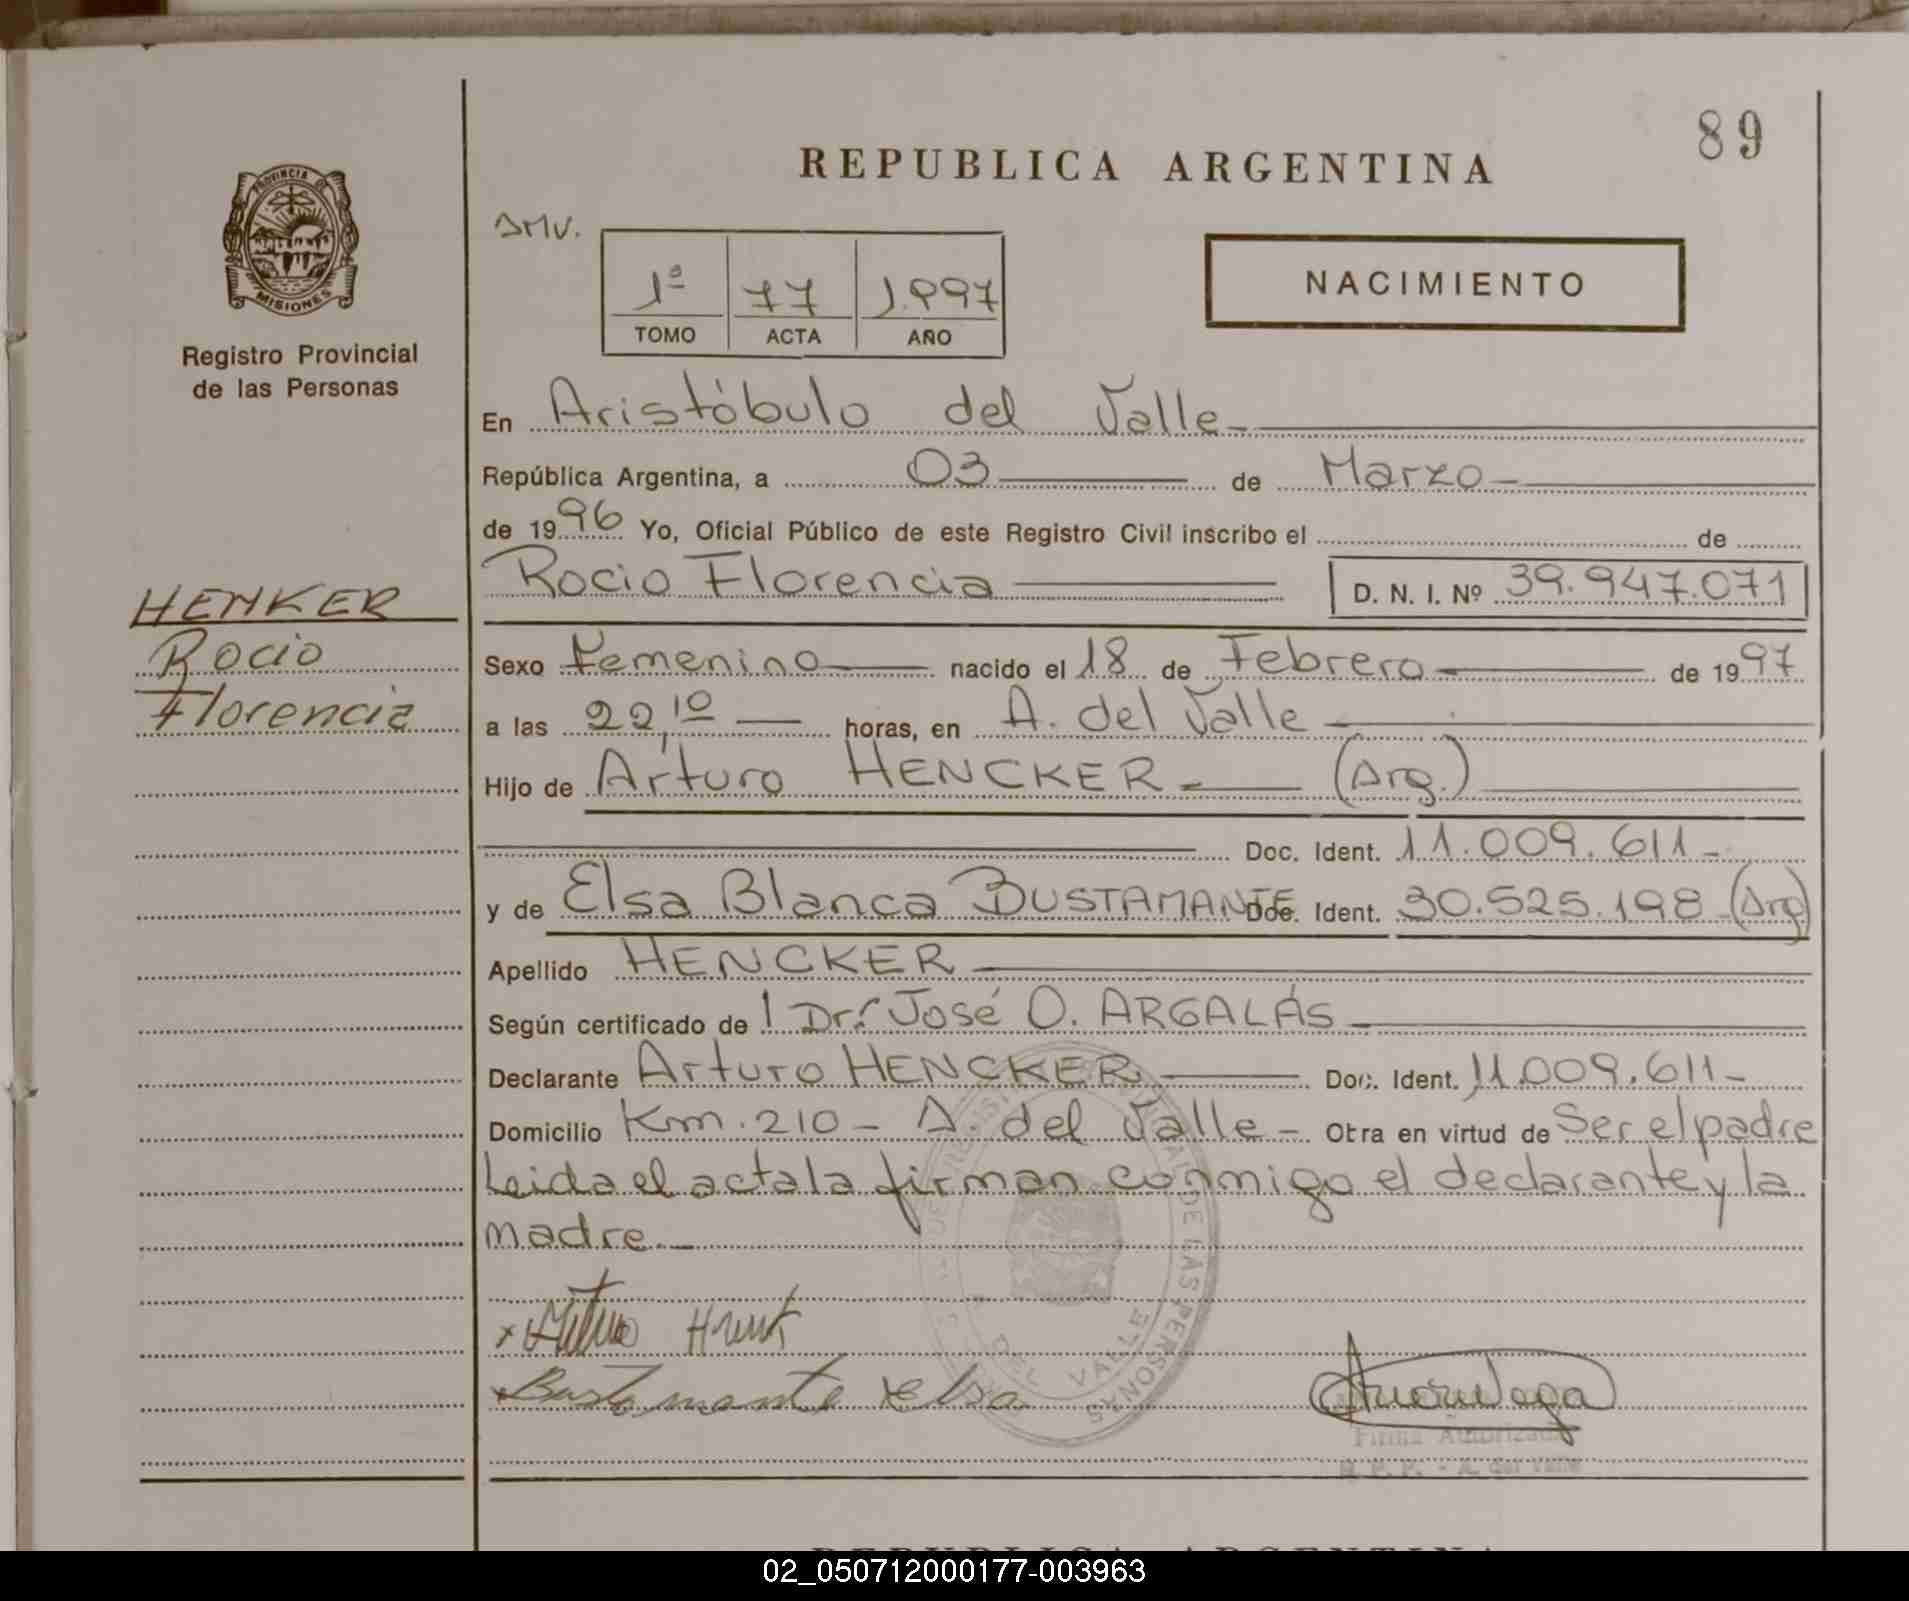 89
REPUBLICA ARGENTINA
PROVINCIA DE
MISIONES
Registro Provincial
de las Personas
1ª 77 1.997
TOMO ACTA AÑO
NACIMIENTO
En Aristóbulo del Valle
República Argentina, a 03 de Marzo
de 1996 Yo, Oficial Público de este Registro Civil inscribo el de
Rocio Florencia D. N. I. Nº 39.947.071
HENKER
Rocio
Florencia
Sexo Femenino nacido el 18 de Febrero de 1997
a las 22,10 horas, en A. del Valle
Hijo de Arturo HENCKER (Arg.)
Doc. Ident. 11.009.611
y de Elsa Blanca BUSTAMANTE Doc. Ident. 30.525.198 (Arg)
Apellido HENCKER
Según certificado de l Dr: José O. ARGALÁS
Declarante Arturo HENCKER Doc. Ident. 11.009.611
Domicilio Km. 210 - A. del Valle - Otra en virtud de Ser el padre
Leida el acta la firman conmigo el declarante y la
madre.
DE LAS PERSONAS
DEL VALLE
Bustamante Elsa
Firma Autorizada
R. P. P. - A. del Valle
REPUBLICA ARGENTINA
02_050712000177-003963